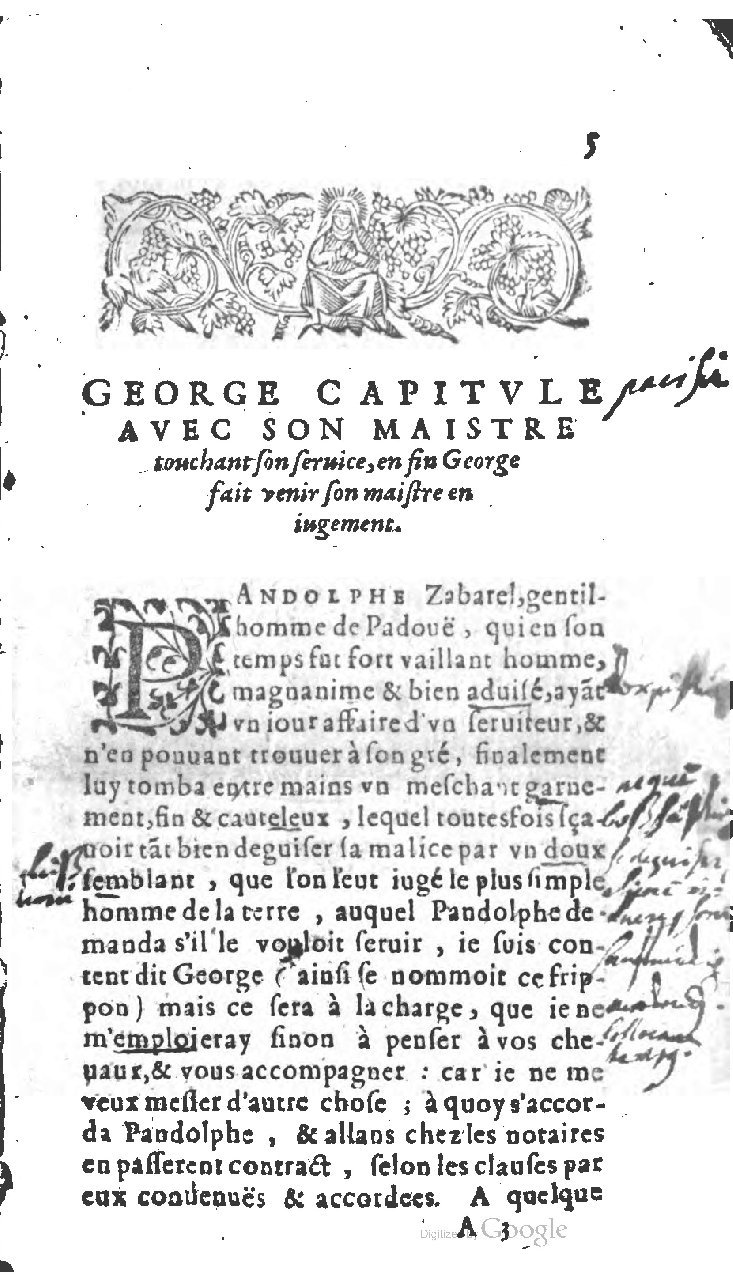 5
GEORGE CAPITVLE
AVEC SON MAISTRE
touchant ſon ſeruice, en fin George
fait venir ſon maiſtre en
iugement.
PANDOLPHE Zabarel, gentil-
homme de Padouë, qui en ſon
temps fut fort vaillant homme,
magnanime & bien aduiſé, ayāt
vn iour affaire d'vn ſeruiteur, &
n'en pouuant trouuer à ſon gré, finalement
luy tomba entre mains vn meſchant garne-
ment, fin & cauteleux, lequel toutesfois ſça-
uoir tāt bien deguiſer ſa malice par vn doux
ſemblant, que l'on l'eut iugé le plus ſimple
homme de la terre, auquel Pandolphe de
manda s'il le vouloit ſeruir, ie ſuis con-
tent dit George (ainſi ſe nommoit ce frip-
pon) mais ce ſera à la charge, que ie ne
m'emploieray ſinon à penſer à vos che-
uaux, & vous accompagner : car ie ne me
veux meſler d'autre choſe ; à quoy s'accor-
da Pandolphe, & allans chez les notaires
en paſſerent contract, ſelon les clauſes par
eux contenuës & accordees. A quelque
A 3
Digitized by Google